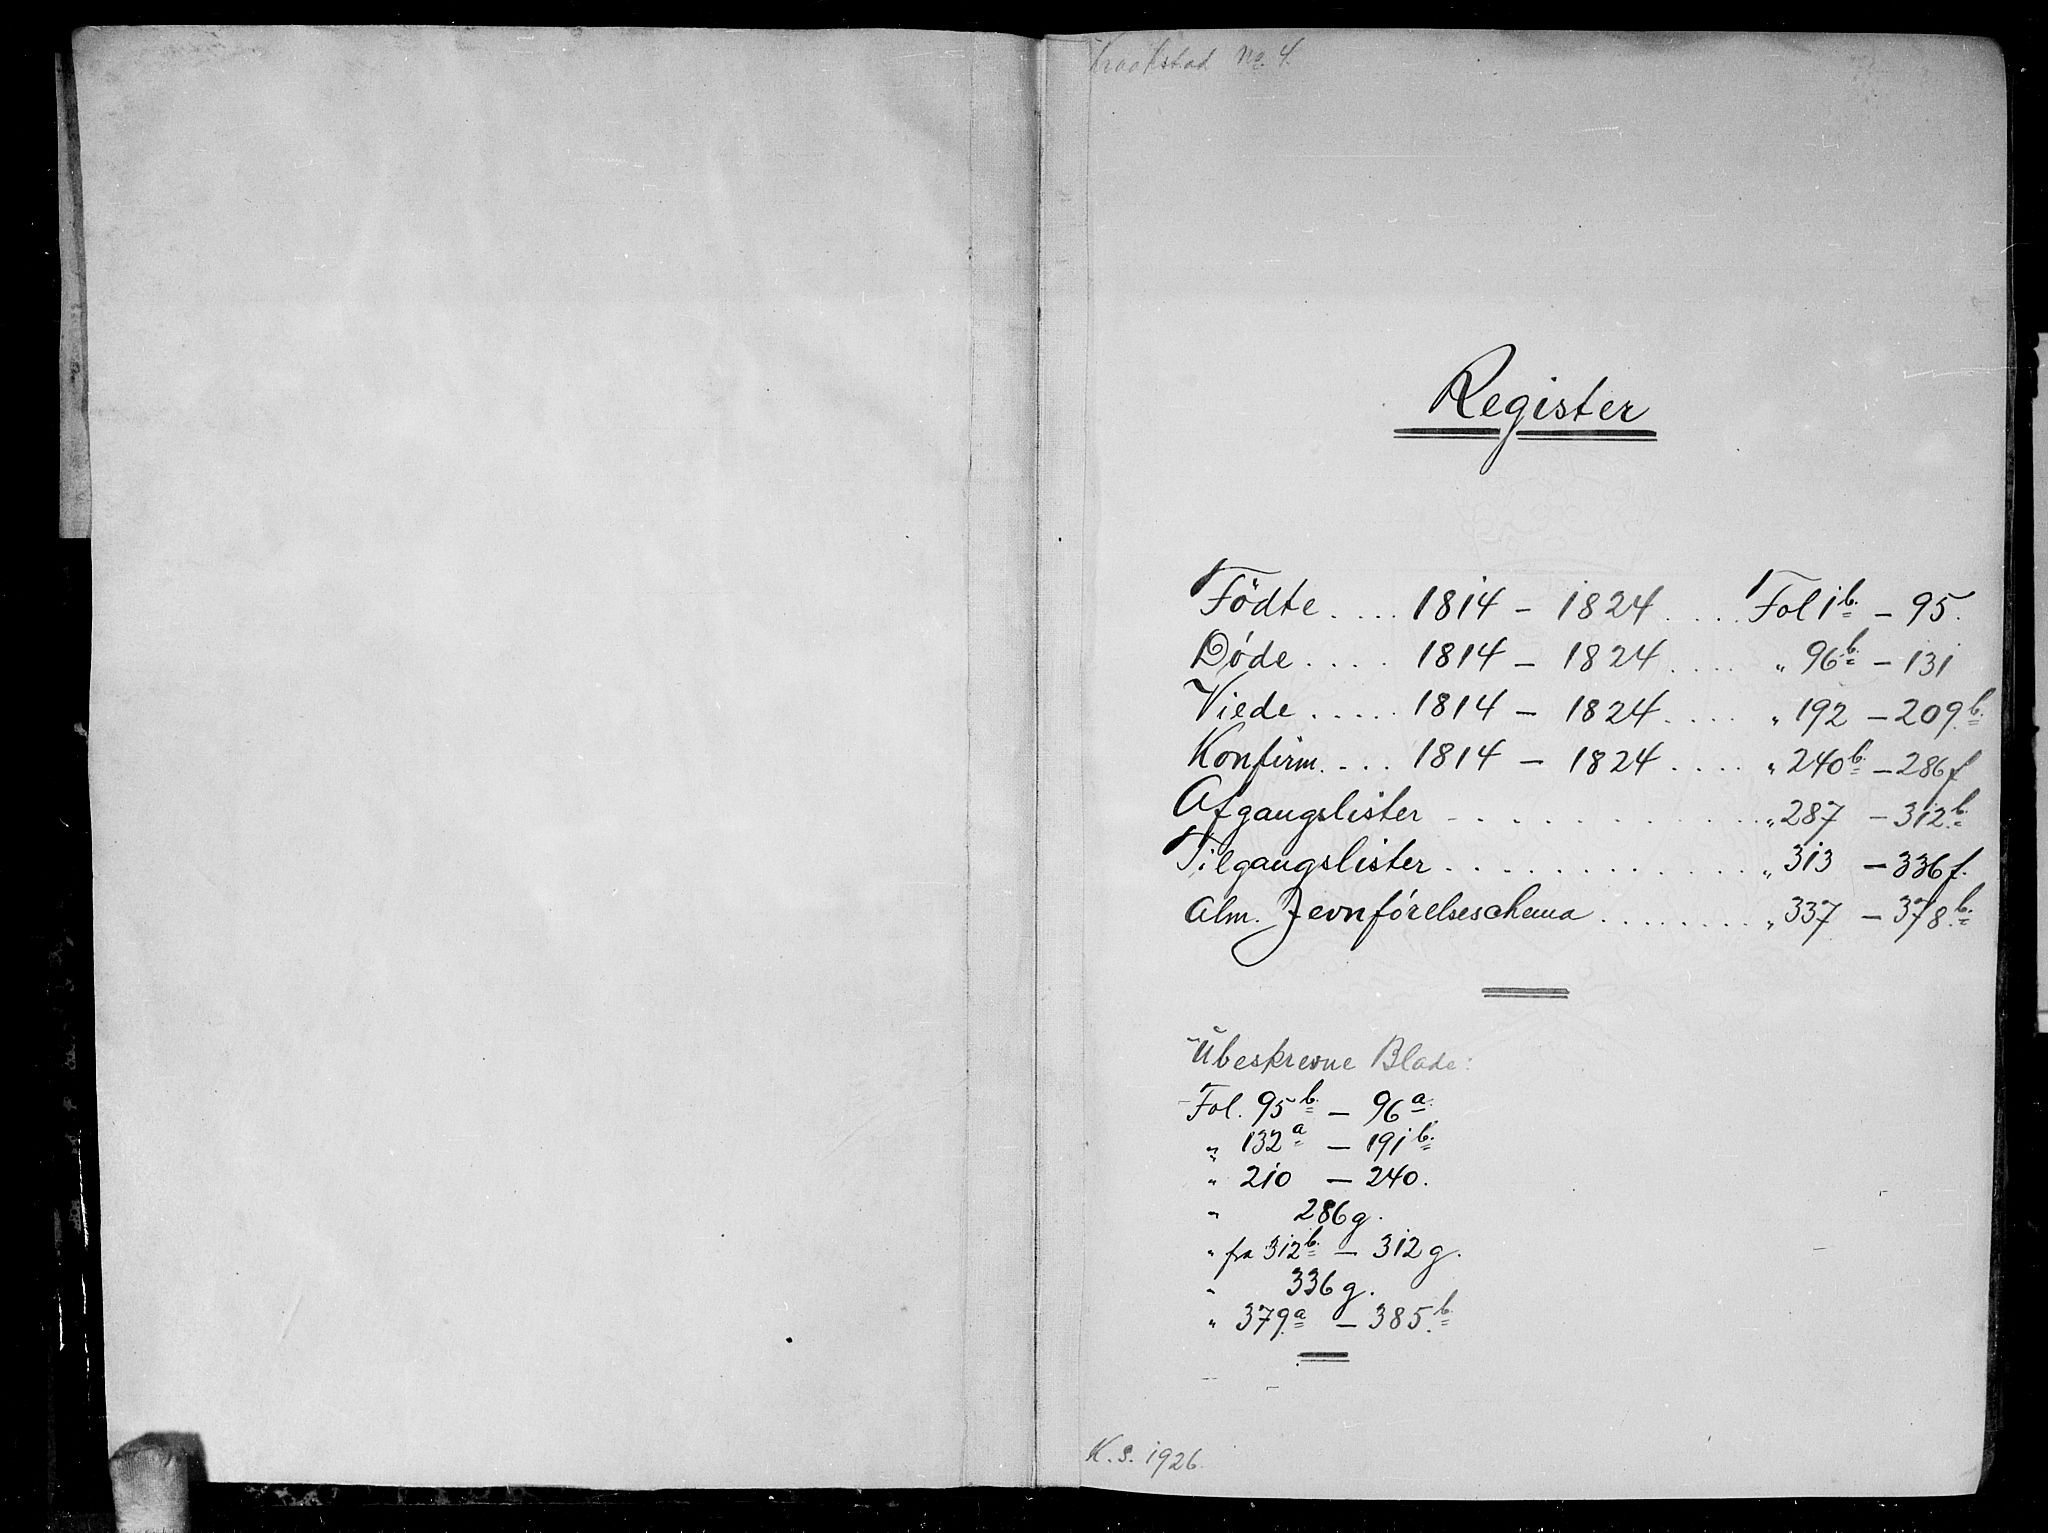 Kraakstad No. 4.
Register
Födte .... 1814 - 1824 .... Fol 1b. - 95.
Døde .... 1814 - 1824 .... " 96b. - 131
Viede ..... 1814 - 1824 .... " 192 - 209b.
Konfirm. ... 1814 - 1824 .... " 240b. - 286f
Afgangslister - .......... " 287 - 312b.
Tilgangslister ............ " 313 - 336f.
Alm. Jevnförelseschema ........ " 337 - 378b.
Ubeskrevne Blade:
Fol. 95b. - 96a.
" 132a - 191b.
" 210 - 240.
" 286g.
" fra 312b. - 312g.
" 336g.
" 379a - 385b.
K. S. 1926.